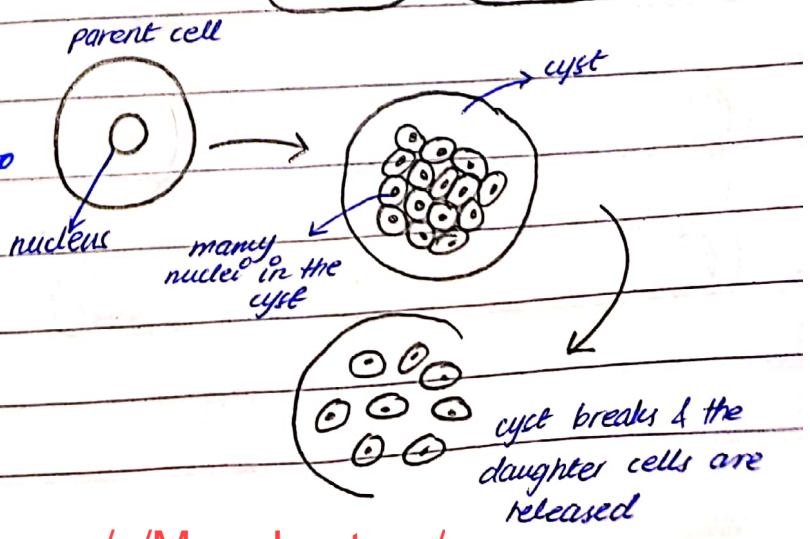 parent cell
cyst
nucleus
many
nuclei in the
cyst
cyct breaks & the
daughter cells are
released